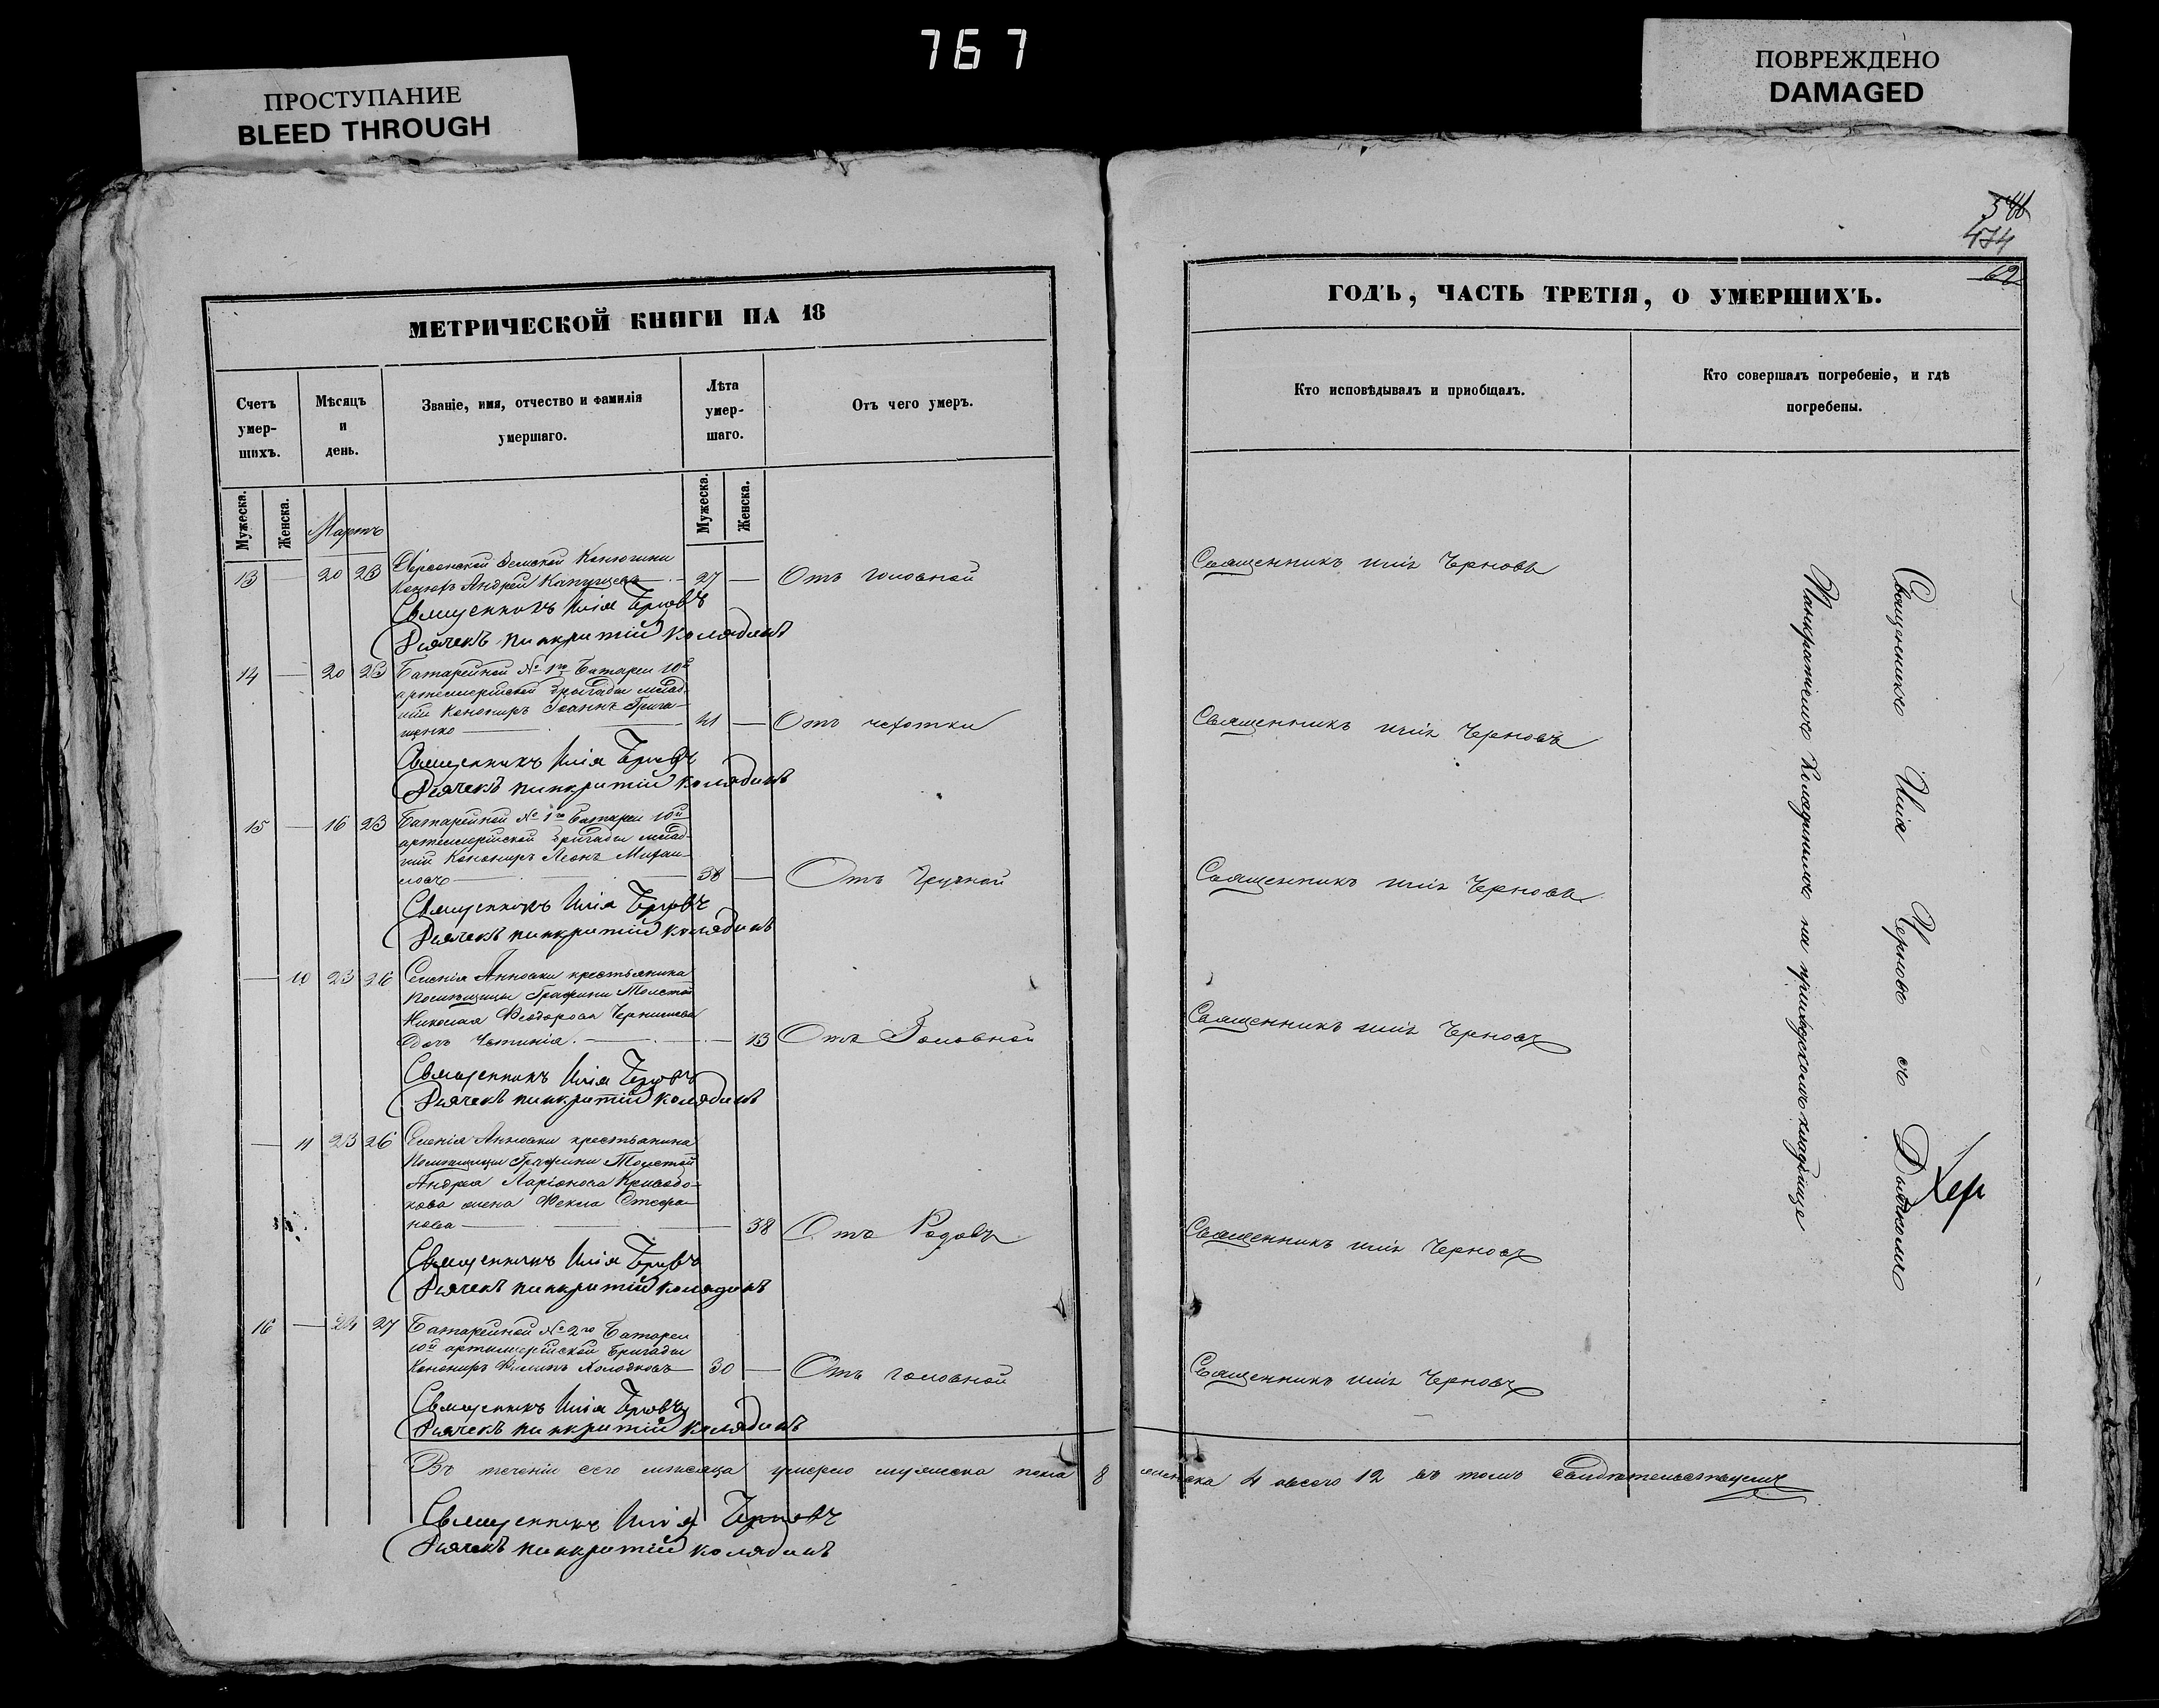 767
ПРОСТУПАНИЕ
BLEED THROUGH
ПОВРЕЖДЕНО
DAMAGED
474
62
МЕТРИЧЕСКОЙ КНИГИ НА 18
Счетъ умер-шихъ.
Мѣсяцъ и день.
Званіе, имя, отчество и фамилія умершаго.
Лѣта умер-шаго.
Отъ чего умеръ.
Мужеска.
Женска.
Мужеска.
Женска.
Мартъ
13 — 20 23
Конюхъ Андрей — 27 — Отъ головной
Священникъ Илія Черновъ
Дьячекъ Панкратій Колядинъ
14 — 20 23 Батарейной № 1го Батареи 10й
артиллерійской бригады млад-
шій Канониръ Іоаннъ Грига-
щенко — 41 — Отъ чехотки
Священникъ Илія Черновъ
Дьячекъ Панкратій Колядинъ
15 — 16 23 Батарейной № 1го Батареи 10й
артиллерійской бригады млад-
шій Канониръ Леонъ Михаи-
ловъ — 38 — Отъ Грудной
Священникъ Илія Черновъ
Дьячекъ Панкратій Колядинъ
— 10 23 26 Селенія Анновки крестьянина
Помѣщицы Графини Толстой
Николая Феодорова Чернышева
дочь — 13 Отъ Головной
Священникъ Илія Черновъ
Дьячекъ Панкратій Колядинъ
— 11 23 26 Селенія Анновки крестьянина
Помѣщицы Графини Толстой
Андрея Ларіонова
жена Фекла Стефа-
нова — 38 Отъ Родовъ
Священникъ Илія Черновъ
Дьячекъ Панкратій Колядинъ
16 — 24 27 Батарейной № 2го Батареи
10й артиллерійской Бригады
Канониръ Филипъ Холодковъ — 30 — Отъ головной
Священникъ Илія Черновъ
Дьячекъ Панкратій Колядинъ
Въ теченіи сего мѣсяца умерло мужеска пола 8 женска 4 всего 12 въ томъ свидѣтельствуемъ
Священникъ Илія Черновъ
Дьячекъ Панкратій Колядинъ
ГОДЪ, ЧАСТЬ ТРЕТІЯ, О УМЕРШИХЪ.
Кто исповѣдывалъ и приобщалъ.
Кто совершалъ погребеніе, и гдѣ погребены.
Священникъ Илія Черновъ
Священникъ Илія Черновъ
Священникъ Илія Черновъ
Священникъ Илія Черновъ
Священникъ Илія Черновъ
Священникъ Илія Черновъ
Священникъ Илія Черновъ съ Дьячкомъ
Панкратіемъ Колядинымъ на приходскомъ кладбище
Хер